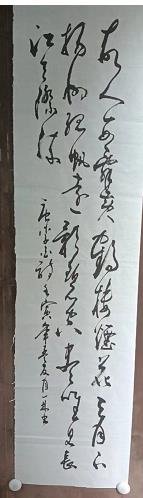 故人西辞黄鹤楼烟花三月下
扬州孤帆远影碧空尽唯见长
江天际流
唐李白诗壬寅年夏月